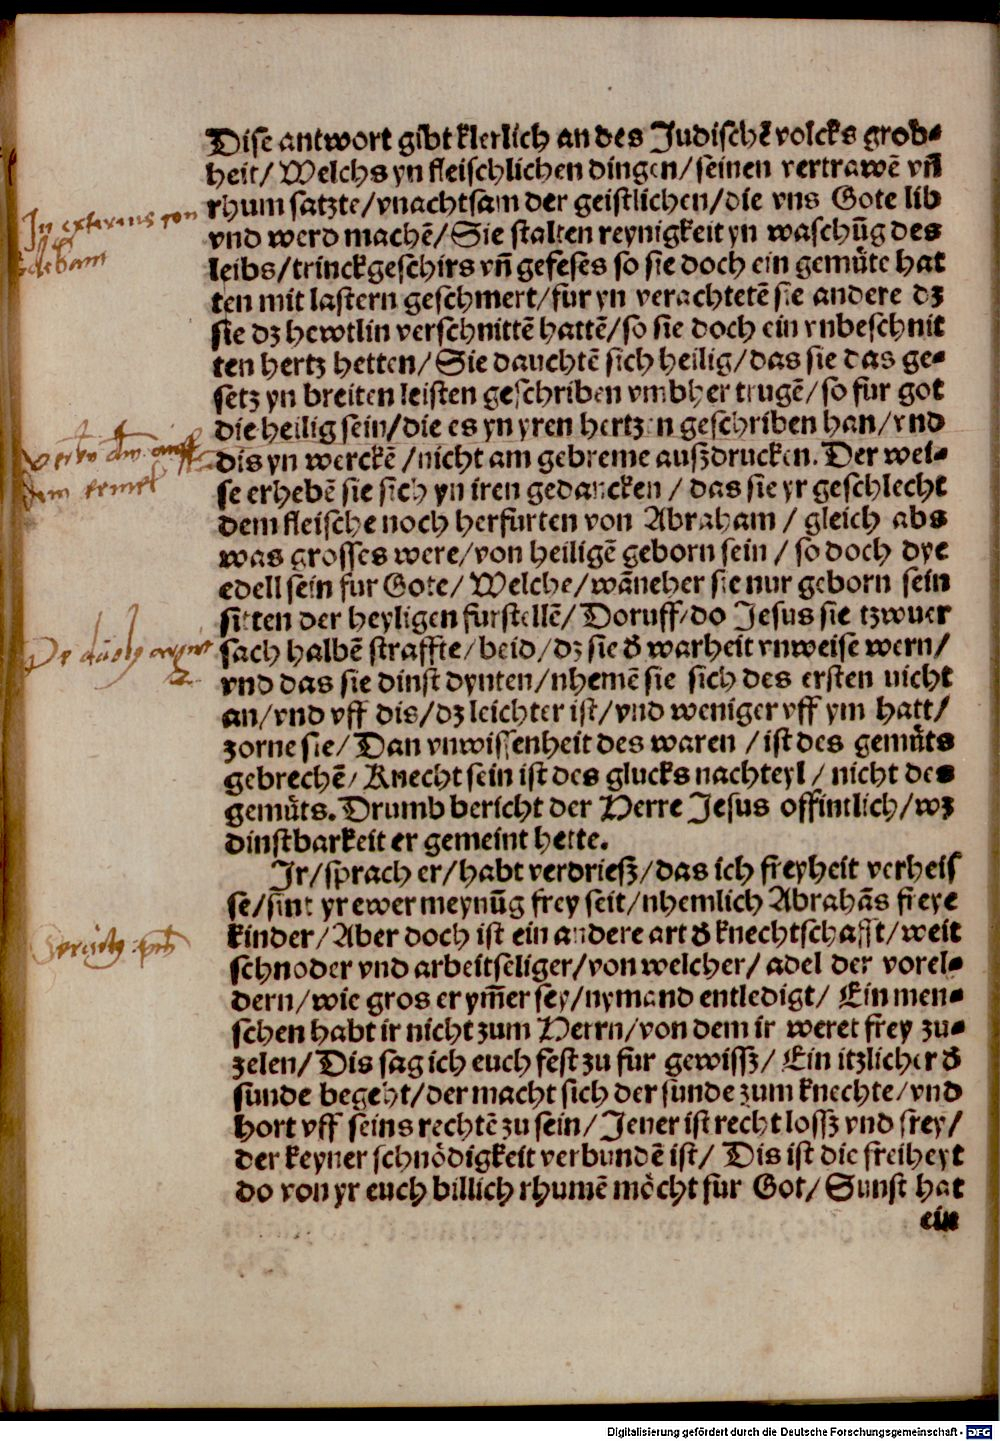 Dise antwort gibt klerlich an des Judischē volcks grob-
heit/ Welchs yn fleischlichen dingen/ seinen vertrawē vñ
rhum satzte/vnachtsam der geistlichen/die vns Gote lib
vnd werd machē/ Sie stalten reynigkeit yn waschūg des
leibs/trinckgeschirs vñ gefeses so sie doch ein gemüte hat
ten mit lastern geschmert/fur yn verachtetē sie andere dz
sie dz hewtlin verschnittē hattē/so sie doch ein vnbeschnit
ten hertz hetten/ Sie dauchtē sich heilig/das sie das ge-
setz yn breiten leisten geschriben vmbher trugē/so fur got
die heilig sein/die es yn yren hertzen geschriben han/vnd
dis yn werckē/nicht am gebreme außdrucken. Der wei-
se erhebē sie sich yn iren gedancken/ das sie yr geschlecht
dem fleische noch herfurten von Abraham/ gleich abs
was grosses were/von heiligē geborn sein/ so doch dye
edell sein fur Gote/ Welche/wāneher sie nur geborn sein
sitten der heyligen furstellē/ Doruff/do Jesus sie tzwuer
sach halbē straffte/beid/dz sie d̕ warheit vnweise wern/
vnd das sie dinst dynten/nhemē sie sich des ersten nicht
an/vnd vff dis/dz leichter ist/vnd weniger vff ym hatt/
zorne sie/ Dan vnwissenheit des waren/ist des gemüts
gebrechē/ Knecht sein ist des glucks nachteyl/ nicht des
gemüts. Drumb bericht der Herre Jesus offintlich/wz
dinstbarkeit er gemeint hette.
Jr/sprach er/habt verdrieß/das ich freyheit verheis
se/sint yr ewer meynūg frey seit/nhemlich Abrahās freye
kinder/Aber doch ist ein andere art d̕ knechtschafft/weit
schnoder vnd arbeitseliger/von welcher/ adel der vorel-
dern/wie gros er ym̄er sey/nymand entledigt/ Ein men-
schen habt ir nicht zum Herrn/von dem ir weret frey zu-
zelen/ Dis sag ich euch fest zu fur gewißz/ Ein itzlicher d̕
sunde begeht/der macht sich der sunde zum knechte/vnd
hort vff seins rechtē zu sein/ Jener ist recht loßz vnd frey/
der keyner schnödigkeit verbundē ist/ Dis ist die freiheyt
do von yr euch billich rhumē möcht fur Got/ Sunst hat
ein
In externis
dem ermel
Digitalisierung gefördert durch die Deutsche Forschungsgemeinschaft - DFG